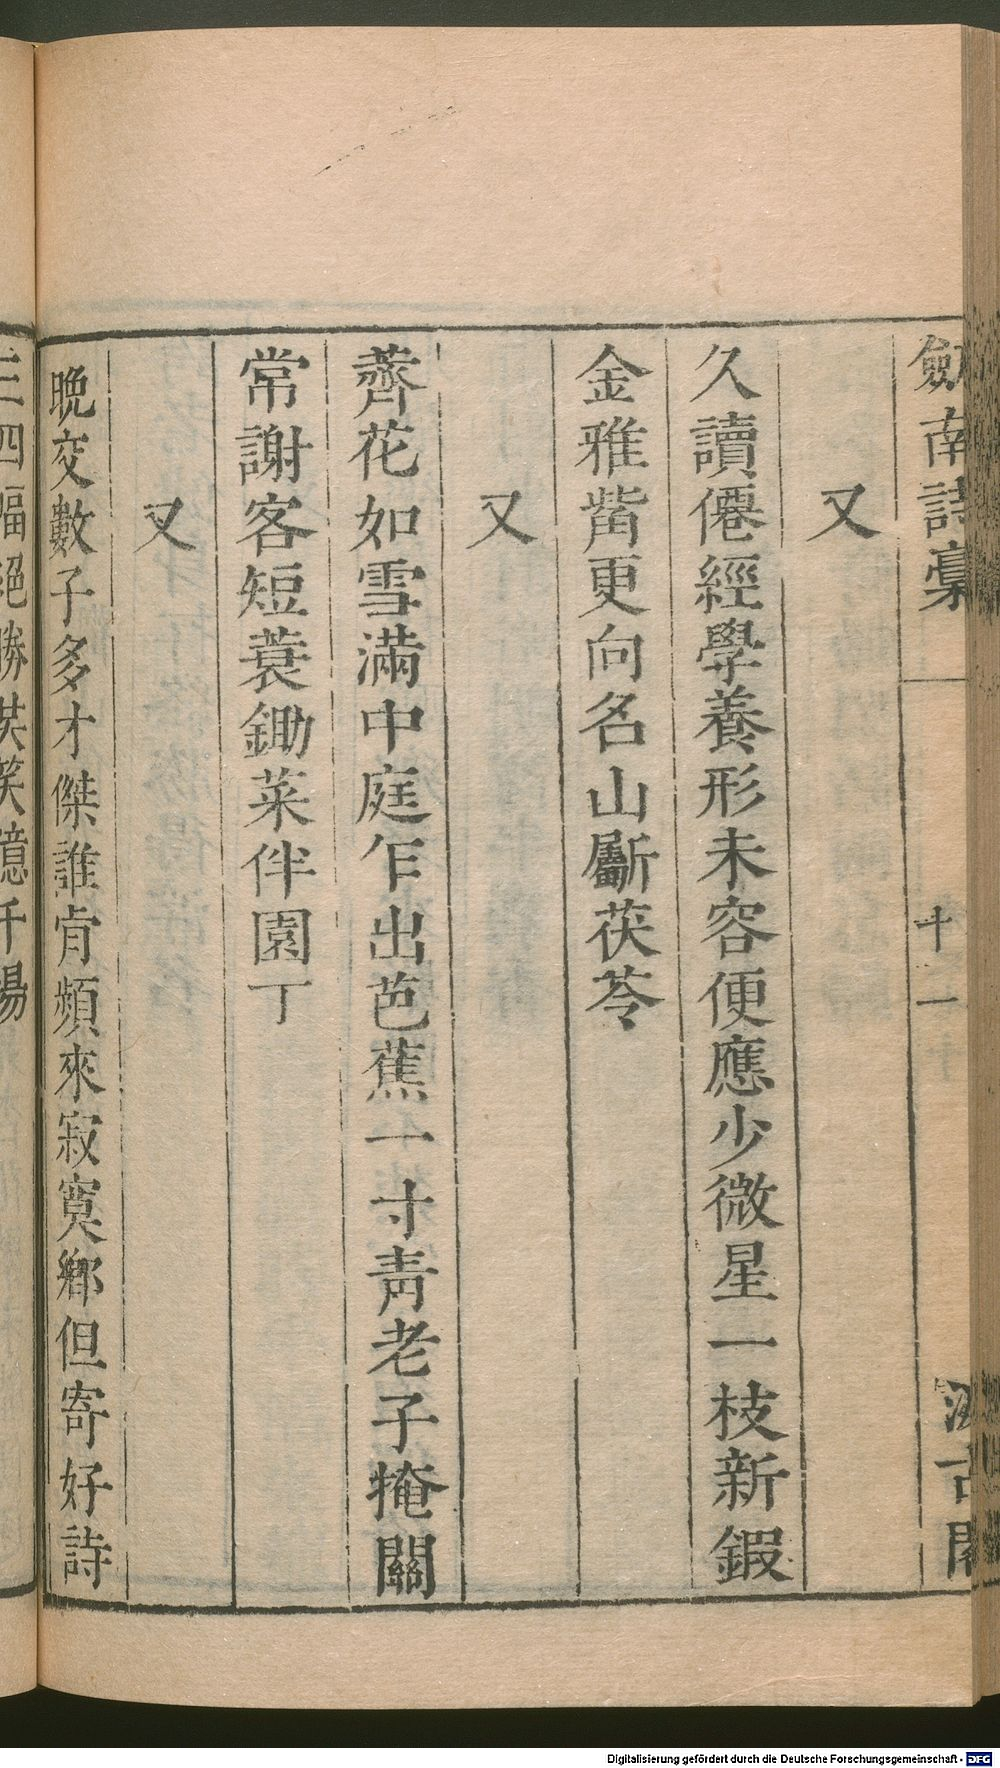 劎南詩稾 十一 汲古閣
又
久讀僊經學養形未容便應少微星一枝新鍜
金雅觜更向名山斸茯苓
又
薺花如雪滿中庭乍出芭蕉一寸青老子掩關
常謝客短蓑鋤菜伴園丁
又
晩交數子多才傑誰肯頻來寂寞鄉但寄好詩
三四幅絕勝共笑億千場
Digitalisierung gefördert durch die Deutsche Forschungsgemeinschaft - DFG